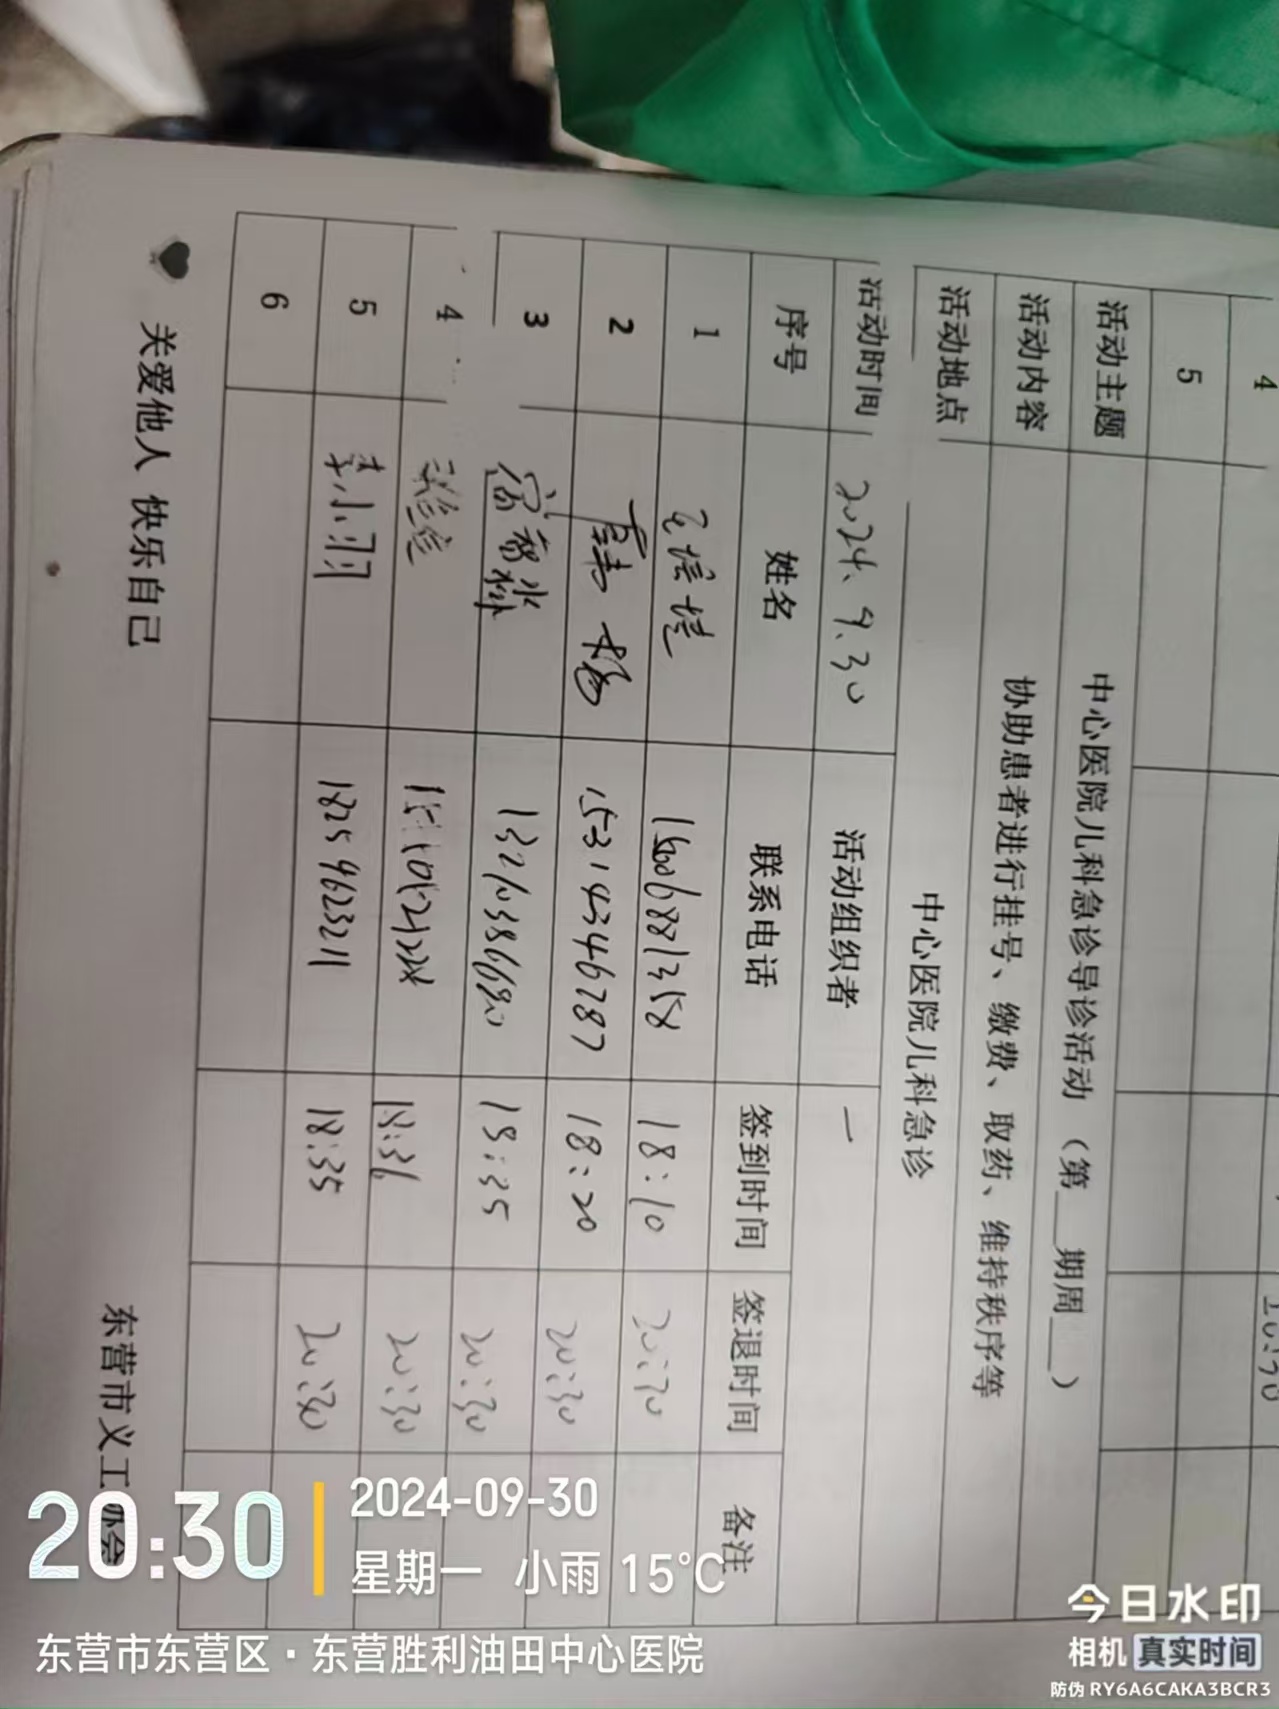 4
5
活动主题 中心医院儿科急诊导诊活动（第__期周__）
活动内容 协助患者进行挂号、缴费、取药、维持秩序等
活动地点 中心医院儿科急诊
活动时间 2024.9.30 活动组织者 一
序号 姓名 联系电话 签到时间 签退时间 备注
1 18:10
2 15314346787 18:20 20:30
3 18:35 20:30
4 18:36 20:30
5 李小羽 18259623211 18:35 20:30
6
关爱他人 快乐自己 东营市义工协会
20:30
2024-09-30
星期一 小雨 15℃
东营市东营区·东营胜利油田中心医院
今日水印
相机 真实时间
防伪 RY6A6CAKA3BCR3